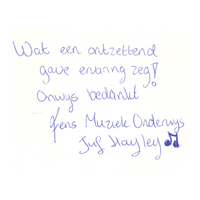 Wat een ontzettend
gave ervaring zeg!
Onwys bedankt
fens Muziek Onderwys
Juf Hayley